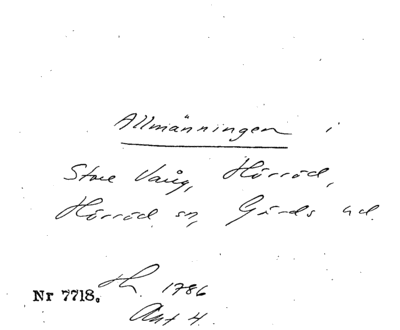 Allmänningen i
Store Vång, Hörröd,
Hörröd sn, Gärds hd.
Nr 7718. Th. 1786
Akt 4.